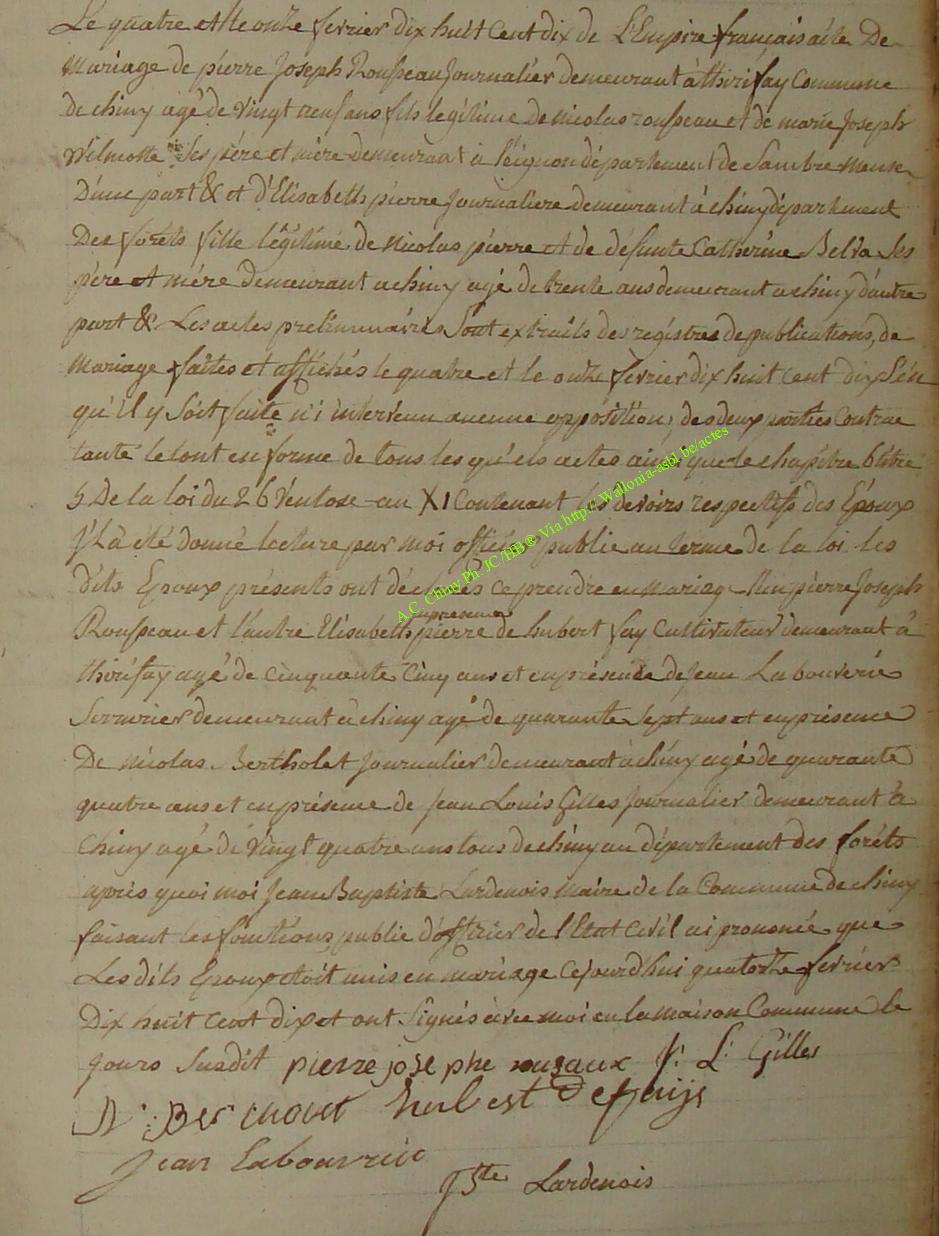 Le quatre et le onze fevrier dix huit Cent dix de L'Empire français acte De
Mariage de pierre Joseph Rousseau Journalier demeurant à thirifay Commune
de chiny agé de vingt neuf ans fils légitime de nicolas rousseau et de marie Joseph
Wilmotte Ses père et mère demeurant à léignon département de Sambre Meuse
D'une part & et d'Elisabeth pierre Journaliere demeurant à chiny département
Des forêts fille légitime de Nicolas pierre et de défunte Catherine Belva Ses
père et mère demeurant a chiny agé de trente ans demeurant a chiny d'autre
part & Les actes preliminaires Sont extraits des registres de publications, de
Mariage faites et affichés le quatre et le onze fevrier dix huit cent dix
qu'il y Soit faite n'i intervenu aucune opposition, des deux parties Contrac
tante le tout en forme de tous les qu'els actes ainsi que le chapitre 6 titre
5 De la loi du 26 Ventose an XI Contenant les devoirs respectifs des Epoux
J'La été donné lecture par moi officier publie au terme de la loi les
dits Epoux présents ont déclarés ce prendre en Mariage l'un pierre Joseph
en présence
Rousseau et l'autre Elisabeth pierre de hubert fay Cultivateur demeurant à
thirifay agé de cinquante Cinq ans et en présence de Jean Labouverie
Serrurier demeurant à chiny agé de quarante Sept ans et en présence
De nicolas Bertholet Journalier demeurant à chiny agé de quarante
quatre ans et en présence de Jean Louis Gilles Journalier demeurant à
Chiny agé de vingt quatre ans tous de chiny au département des forêts
après quoi moi Jean Baptiste Lardenois Maire de la Commune de chiny
faisant les fonctions publie d'officier de l'Etat Civil ai prononcé que
Les dits Epoux étoit unis en mariage cejourd'hui quatorze fevrier
Dix huit Cent dix et ont Signés avec moi en la maison Commune le
jours Susdit pierre jose phe rousaux J: L: Gilles
N: Ber hubert Defaije
Jean Labouverie
J Bte Lardenois
A.C. Chiny Ph. JC/HB © Via http://Wallonia-asbl.be/actes